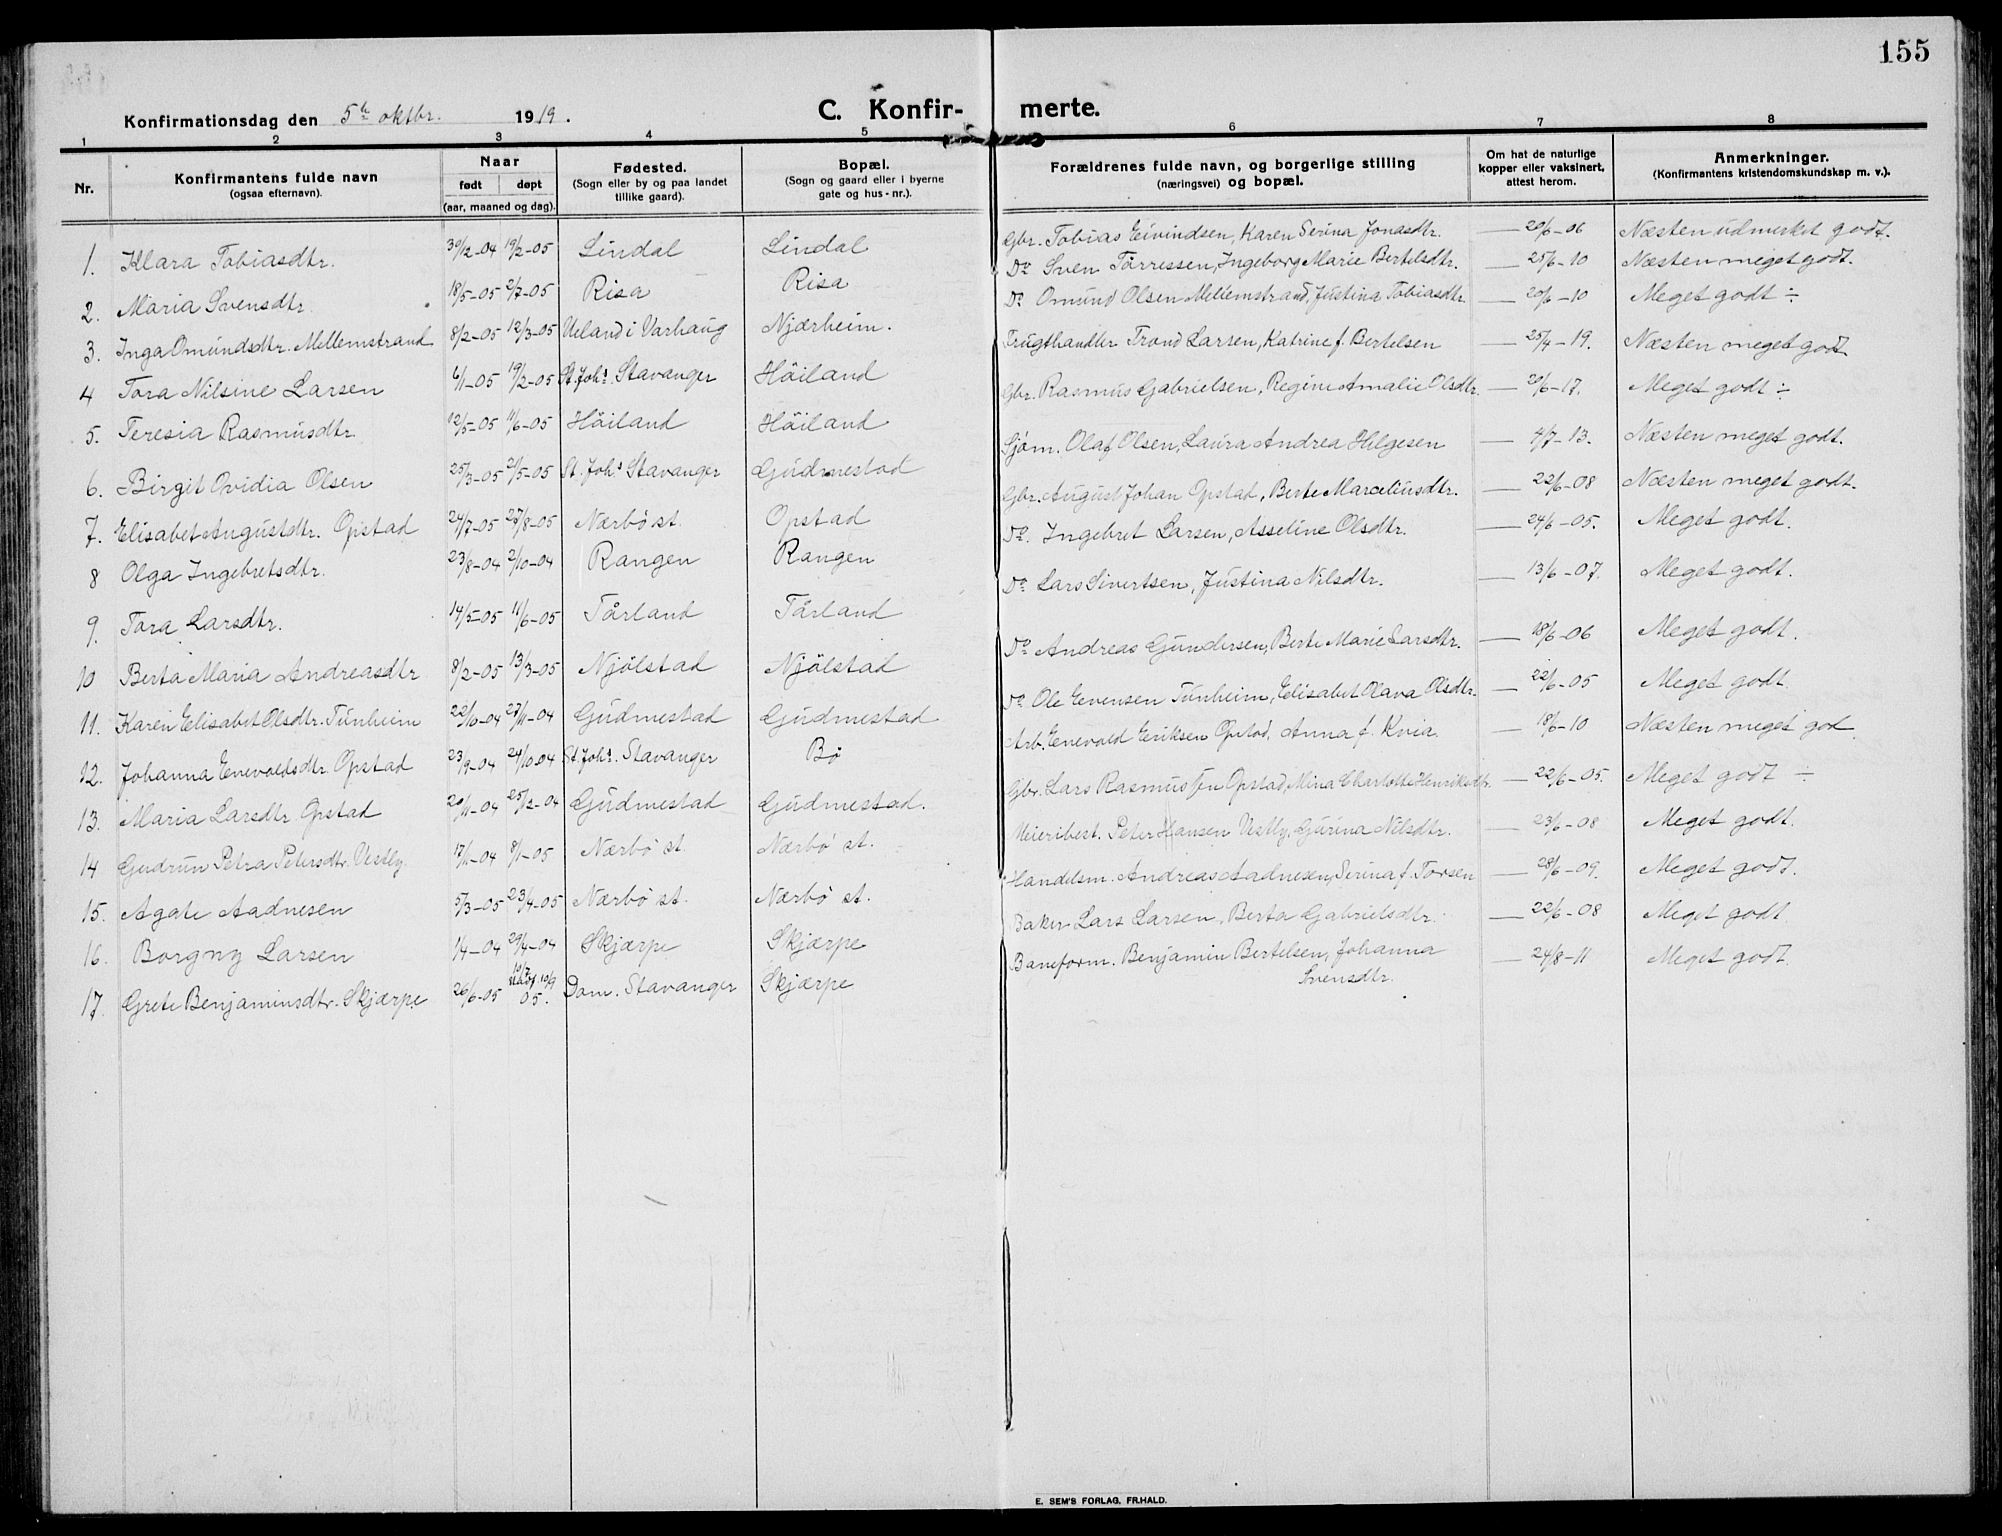 155
Konfirmationsdag den 5te oktbr. 1919. C. Konfir- merte.
1 2 3 4 5 6 7 8
Nr. Konfirmantens fulde navn (ogsaa efternavn). Naar født døpt (aar, maaned og dag). Fødested. (Sogn eller by og paa landet tillike gaard). Bopæl. (Sogn og gaard eller i byerne gate og hus-nr.). Forældrenes fulde navn, og borgerlige stilling (næringsvei) og bopæl. Om hat de naturlige kopper eller vaksinert, attest herom. Anmerkninger. (Konfirmantens kristendomskundskap m. v.).
1. Klara Tobiasdtr. 30/12-04 19/2-05 Lindal Lindal Gbr. Tobias Eivindsen, Karen Serina Jonasdtr. — 20/6-06 Næsten udmerket godt.
2. Maria Svensdtr. 18/5-05 2/7-05 Risa Risa Do Sven Tårressen, Ingeborg Marie Bertelsdtr. — 25/6-10 Næsten meget godt.
3. Inga Omundsdtr. Mellemstrand 8/2-05 12/3-05 Ueland i Varhaug Njærheim. Do Omund Olsen Mellemstrand, Justina Tobiasdtr. — 20/6-10 Meget godt ÷
4 Tora Nilsine Larsen 6/1-05 19/2-05 St. Johs. Stavanger Höiland Frugthandler Trond Larsen, Katrine f. Bertelsen — 25/4-19. Næsten meget godt.
5. Teresia Rasmusdtr. 12/5-05 11/6-05 Höiland Höiland Gbr. Rasmus Gabrielsen, Regine Amalie Olsdtr. — 20/6-17. Meget godt ÷
6. Birgit Ovidia Olsen 25/3-05 2/5-05 St. Johs Stavanger Gudmestad Sjøm. Olaf Olsen, Laura Andrea Helgesen — 4/7-13. Næsten meget godt.
7. Elisabet Augustdtr. Opstad 24/7-05 27/8-05 Nærbö st. Opstad Gbr. August Johan Opstad, Berte Marceliusdtr. — 22/6-08 Næsten meget godt.
8 Olga Ingebretsdtr. 23/8-04 2/10-04 Rangen Rangen Do. Ingebret Larsen, Asseline Olsdtr. — 24/6-05. Meget godt.
9. Tora Larsdtr. 14/5-05 11/6-05 Tårland Tårland Do Lars Sivertsen, Justina Nilsdtr. — 13/6-07. Meget godt.
10 Berta Maria Andreasdtr 8/2-05 13/3-05 Njölstad Njölstad Do Andreas Gundersen, Berte Marie Larsdtr. — 18/6-06 Meget godt.
11. Karen Elisabet Olsdtr. Tunheim 22/10-04 27/11-04 Gudmestad Gudmestad Do Ole Evensen Tunheim, Elisabet Olava Olsdtr. — 22/6-05 Meget godt.
12. Johanna Enevoldsdtr. Opstad 23/9-04 24/10-04 St. Johs. Stavanger Bö Arb. Enevold Eriksen Opstad, Anna f. Kvia. — 18/6-10 Næsten meget god
13. Maria Larsdtr. Opstad 20/11-04 25/12-04 Gudmestad Gudmestad. Gbr. Lars Rasmussen Opstad, Mina Charlotte Henriksdtr. — 22/6-05. Meget godt ÷
14 Gudrun Petra Petersdtr. Vestly 17/11-04 8/1-05 Nærbö st. Nærbö st. Meieribest. Peter Hansen Vestly, Gurina Nilsdtr. — 23/6-08 Meget godt.
15. Agate Aadnesen 5/3-05 23/4-05 Nærbö st. Nærbö st. Handelsm. Andreas Aadnesen, Serina f. Torsen — 28/6-09. Meget godt.
16. Borgny Larsen 1/4-04 29/4-04 Skjærpe Skjærpe Baker Lars Larsen, Berta Gabrielsdtr. — 22/6-08 Meget godt.
17. Grete Benjaminsdtr. Skjærpe 26/6-05 10/9 05. Dom. Stavanger Skjærpe Baneform. Benjamin Bertelsen, Johanna Svensdtr. — 24/8-11 Meget godt.
E. SEM'S FORLAG, FR.HALD.